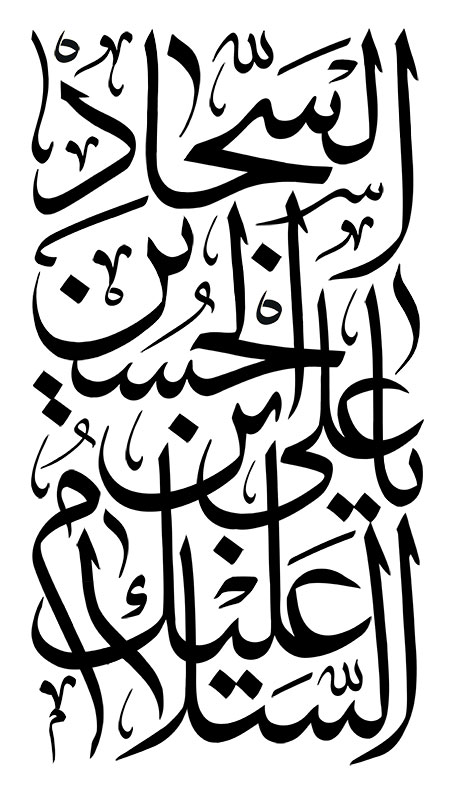 السلام عليك
يا علي ابن
الحسين
السجاد